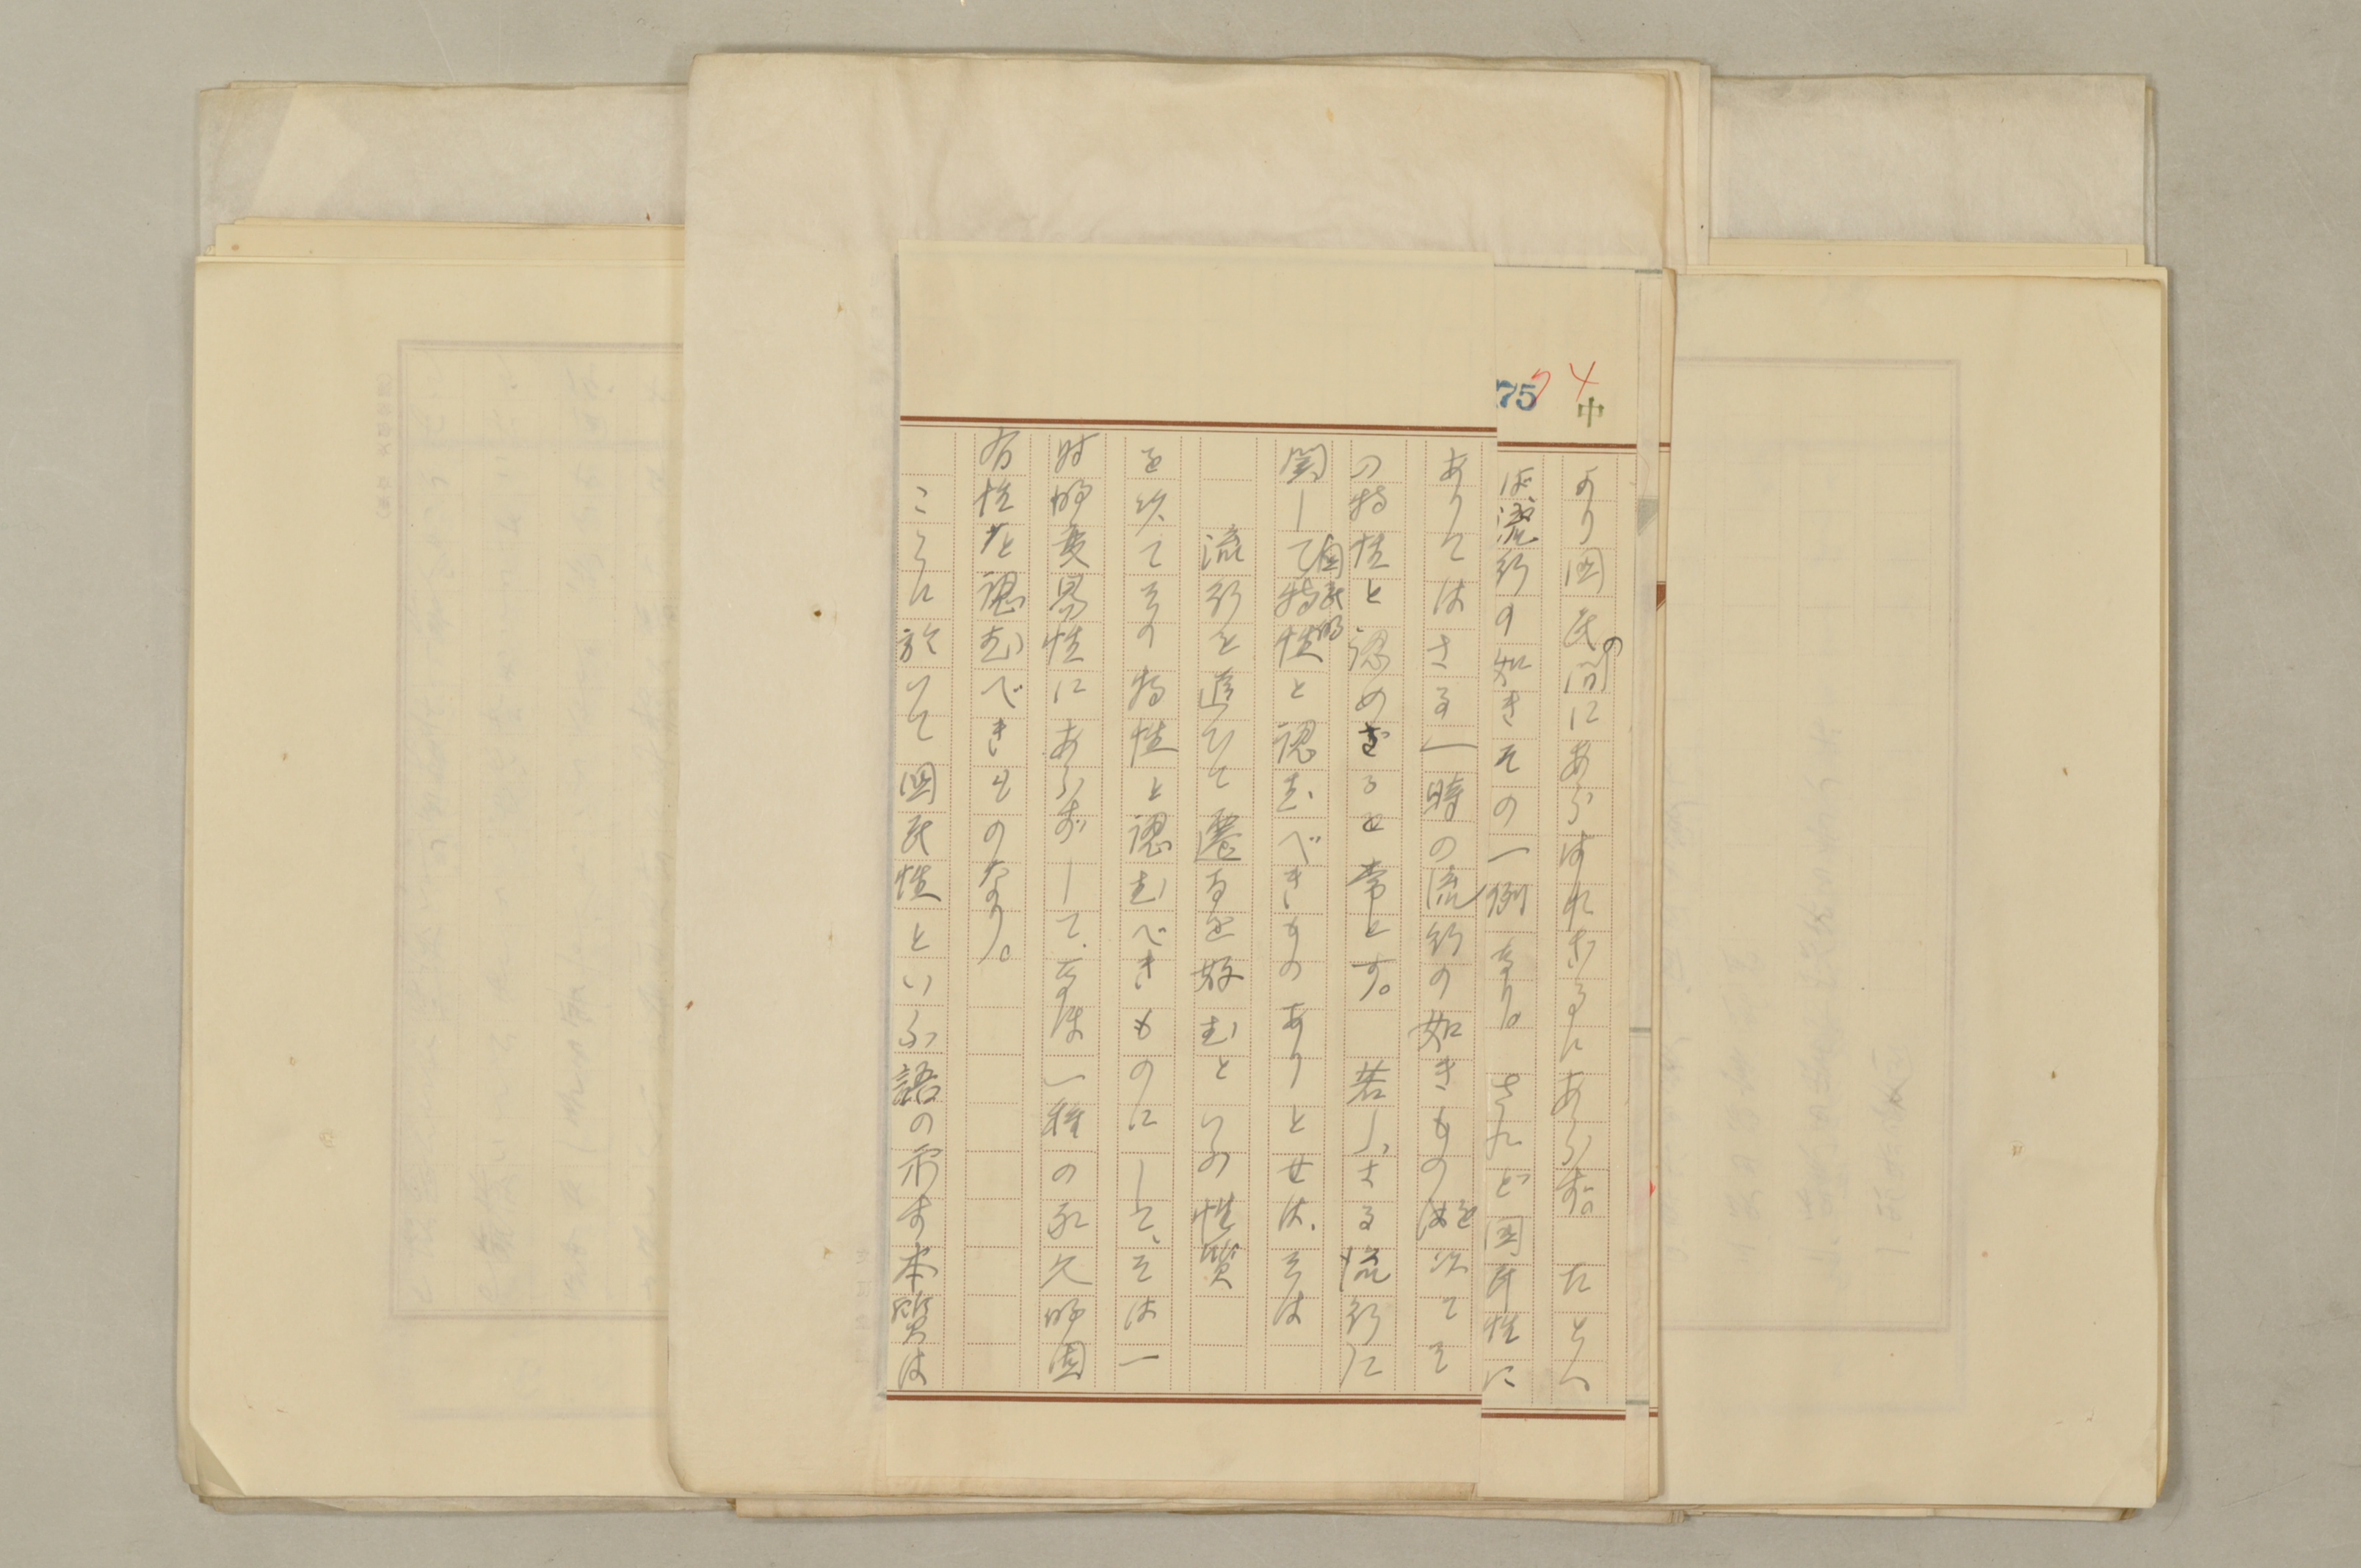 75
4
中
より国民の間にあらはれざるにあらず。たとへ
ば流行の如きその一例なり。されど国民性に
ありてはさる一時の流行の如きものを以てそ
の特性と認めざるを常とす。若しさる流行に
関して国民的特性と認むべきものありとせば、そは
流行を追ひて遷るを好むといふ性質
を以てその特性と認むべきものにして、そは一
時的変易性にあらずして、寧ろ一種の永久的固
有性と認むべきものなり。
こゝに於いて国民性といふ語の示す本質は